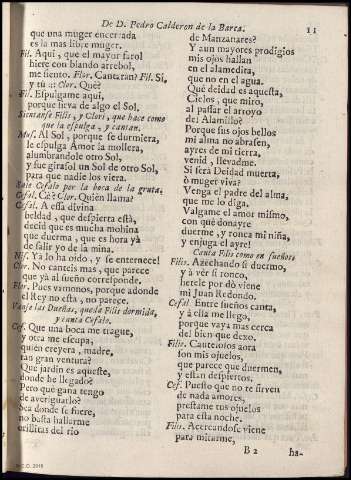 De D. Pedro Calderon de la Barca. 11
que una muger encerrada
es la mas libre muger.
Fil. Aqui, que el mayor farol
hiere con blando arrebol,
me siento. Flor. Cantaràn? Fil. Sí,
y tù Clor. Què?
Fil. Espulgame aqui,
porque lleva de algo el Sol.
Sientanse Filis, y Clori, que hace como
que la espulga, y cantan.
Mus. Al Sol, porque se durmiera,
le espulga Amor la mollera,
alumbrandole otro Sol,
y fue girasol un Sol de otro Sol,
para que nadie los viera.
Sale Cefalo por la boca de la gruta.
Cefal. Cè? Clor. Quien llama?
Cefal. A essa divina
beldad, que despierta està,
decid que es mucha mohina
que duerma, que es hora yà
de salir yo de la mina.
Nis. Ya lo ha oìdo, y se enternece!
Clor. No canteis mas, que parece
que yà al sueño corresponde.
Flor. Pues vamonos, porque adonde
el Rey no està, no parece.
Vanse las Dueñas, queda Filis dormida,
y canta Cefalo.
Cef. Que una boca me trague,
y otra me escupa,
quièn creyera, madre,
tan gran ventura?
Què jardin es aqueste,
donde he llegado?
Pero què gana tengo
de averiguarlo?
Sea donde se fuere,
no basta hallarme
orillitas del rio
de Manzanares?
Y aun mayores prodigios
mis ojos hallan
en el alamedita,
que no en el agua.
Què deidad es aquesta,
Cielos, que miro,
al passar el arroyo
del Alamillo?
Porque sus ojos bellos
mi alma no abrasen,
ayres de mi tierra,
venid, llevadme.
Si serà Deidad muerta,
ò muger viva?
Venga el padre del alma,
que me lo diga.
Valgame el amor mismo,
con què donayre
duerme, y ronca mi niña,
y enjuga el ayre!
Canta Filis como en sueños.
Filis. Azechando si duermo,
y à vèr si ronco,
herele por dò viene
mi Juan Redondo.
Cefal. Entre sueños canta,
y à ella me llego,
porque vaya mas cerca
del bien que dexo.
Filis. Cautelosos aora
son mis ojuelos,
que parece que duermen,
y estàn despiertos.
Cef. Puesto que no te sirven
de nada amores,
prestame tus ojuelos
para esta noche.
Filis. Acercandose viene
para mirarme,
B 2 ha-